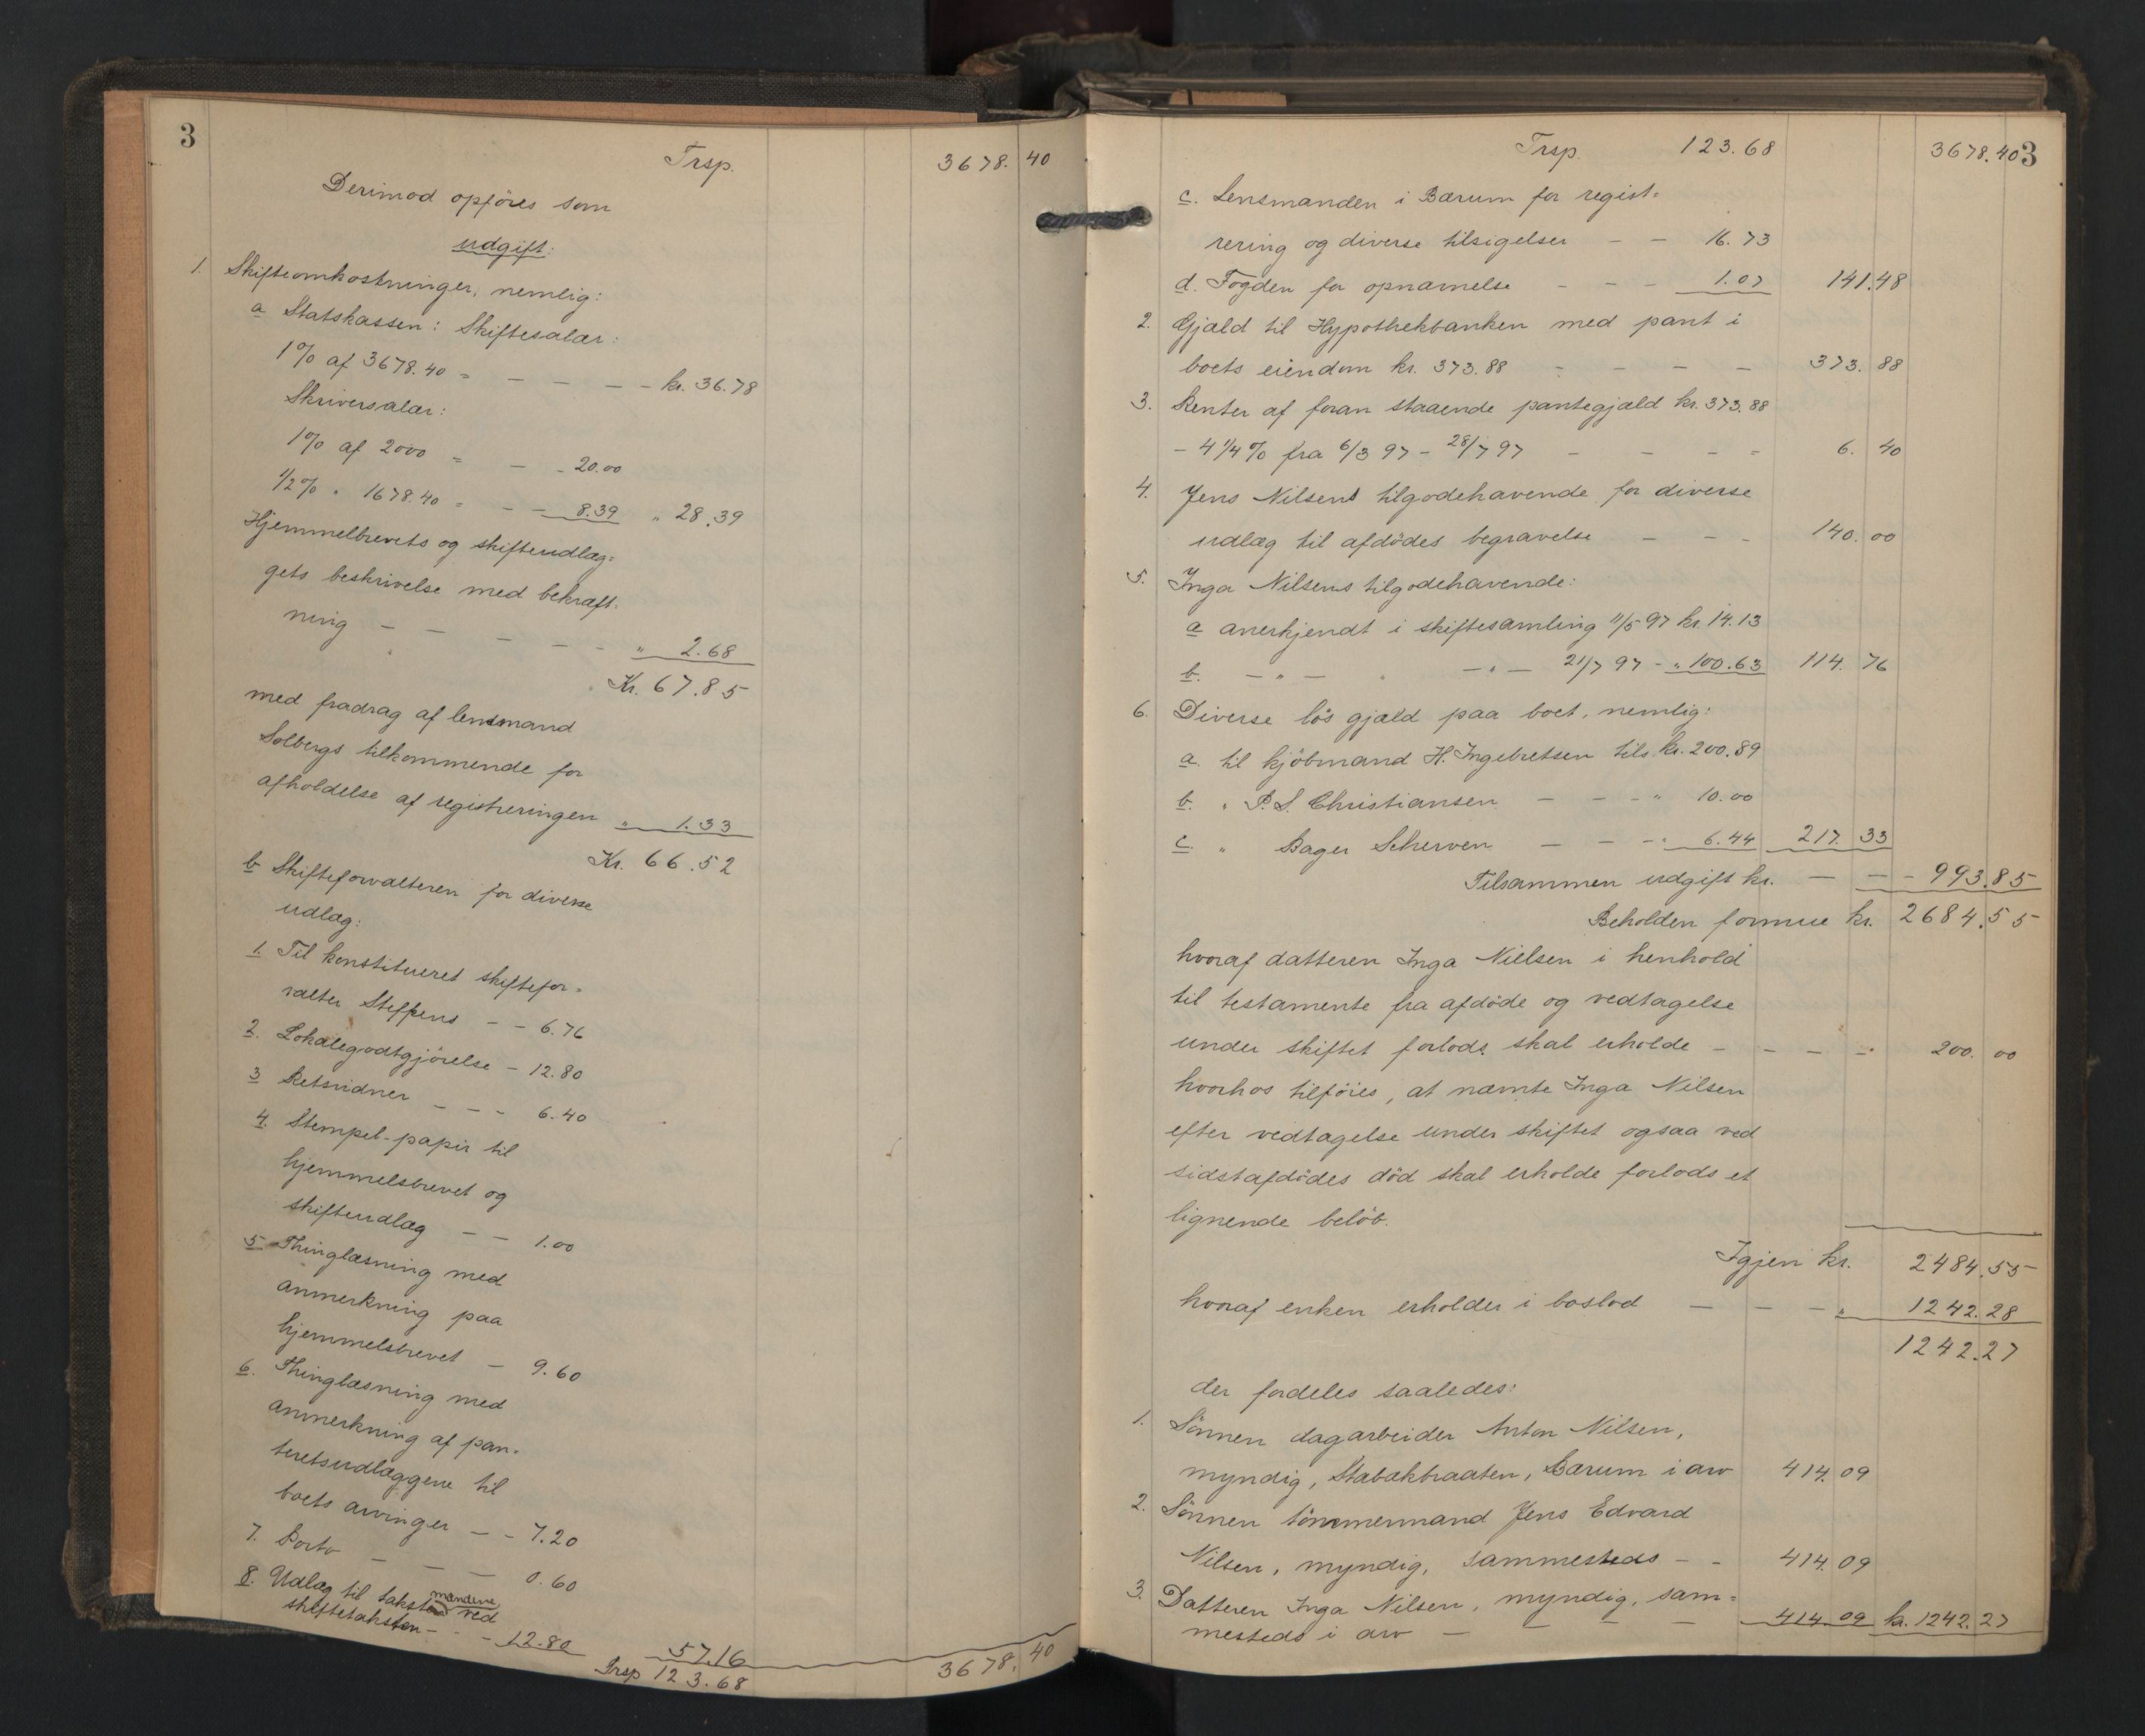 3
Trsp. 3678. 40
Derimod opføres som
udgift:
1. Skifteomkostninger, nemlig:
a Statskassen: Skiftesalær:
1% af 3678.40 = — — — — kr. 36.78
Skriversalær:
1% af 2000 = — - 20.00
1/2% " 1678.40 = — — 8.39 " 28.39
Hjemmelbrevets og skifteudlæg=
gets beskrivelse med bekræft-
ning — — — — - " 2.68
Kr. 67.85
med fradrag af lensmand
Solbergs tilkommende for
afholdelse af registreringen " 1.33
Kr. 66.52
b Skifteforvalteren for diverse
udlæg:
1. Til konstitueret skiftefor=
valter Steffens — — 6.76
2. Lokalegodtgjörelse — 12.80
3 Retsvidner — — - 6.40
4. Stempel-papir til
hjemmelsbrevet og
skifteudlæg — — 1.00
5 Thinglæsning med
anmerkning paa
hjemmelsbrevet — 9.60
6. Thinglæsning med
anmerkning af pan-
teretsudlæggene til
boets arvinger — - 7.20
7. Porto — — — 0.60
8. Udlæg til takstmændene ved
skiftetaksten - - - 12.80 57.16
Trsp 123.68 3678. 40
Trsp. 123.68 3678.40 3
c. Lensmanden i Bærum for regist=
rering og diverse tilsigelser — — 16.73
d. Fogden for opnævnelse — — — 1.07 141.48
2. Gjæld til Hypothekbanken med pant i
boets eiendom kr. 373.88 — — — — 373. 88
3. Renter af foran staaende pantegjæld kr. 373.88
- 4 1/4% fra 6/3 97 - 28/7 97 — — — = 6. 40
4. Jens Nilsens tilgodehavende for diverse
udlæg til afdødes begravelse — — - 140. 00
5. Inga Nilsens tilgodehavende:
a anerkjendt i skiftesamling 11/5 97 kr. 14.13
b. — " — — " — 21/7 97 - " 100.63 114. 76
6. Diverse løs gjæld paa boet, nemlig:
a. til kjöbmand H. Ingebretsen tils. kr. 200.89
b. " P. S. Christiansen — — - " 10.00
c. " Bager Scherven — — - " 6.44 217. 33
Tilsammen udgift kr. — — - 993.85
Beholden formue kr. 2684.55
hvoraf datteren Inga Nielsen i henhold
til testamente fra afdøde og vedtagelse
under skiftet forlods skal erholde — — — - 200. 00
hvorhos tilføies, at nævnte Inga Nilsen
efter vedtagelse under skiftet ogsaa ved
sidstafdødes død skal erholde forlods et
lignende beløb.
Igjen kr. 2484.55
hvoraf enken erholder i boslod — — — " 1242.28
1242.27
der fordeles saaledes:
1. Sönnen dagarbeider Anton Nilsen,
myndig, Stabækbraaten, Bærum i arv 414. 09
2. Sönnen tömmermand Jens Edvard
Nilsen, myndig, sammesteds — - 414. 09
3. Datteren Inga Nilsen, myndig, sam=
mesteds i arv — — — 414. 09 kr. 1242.27